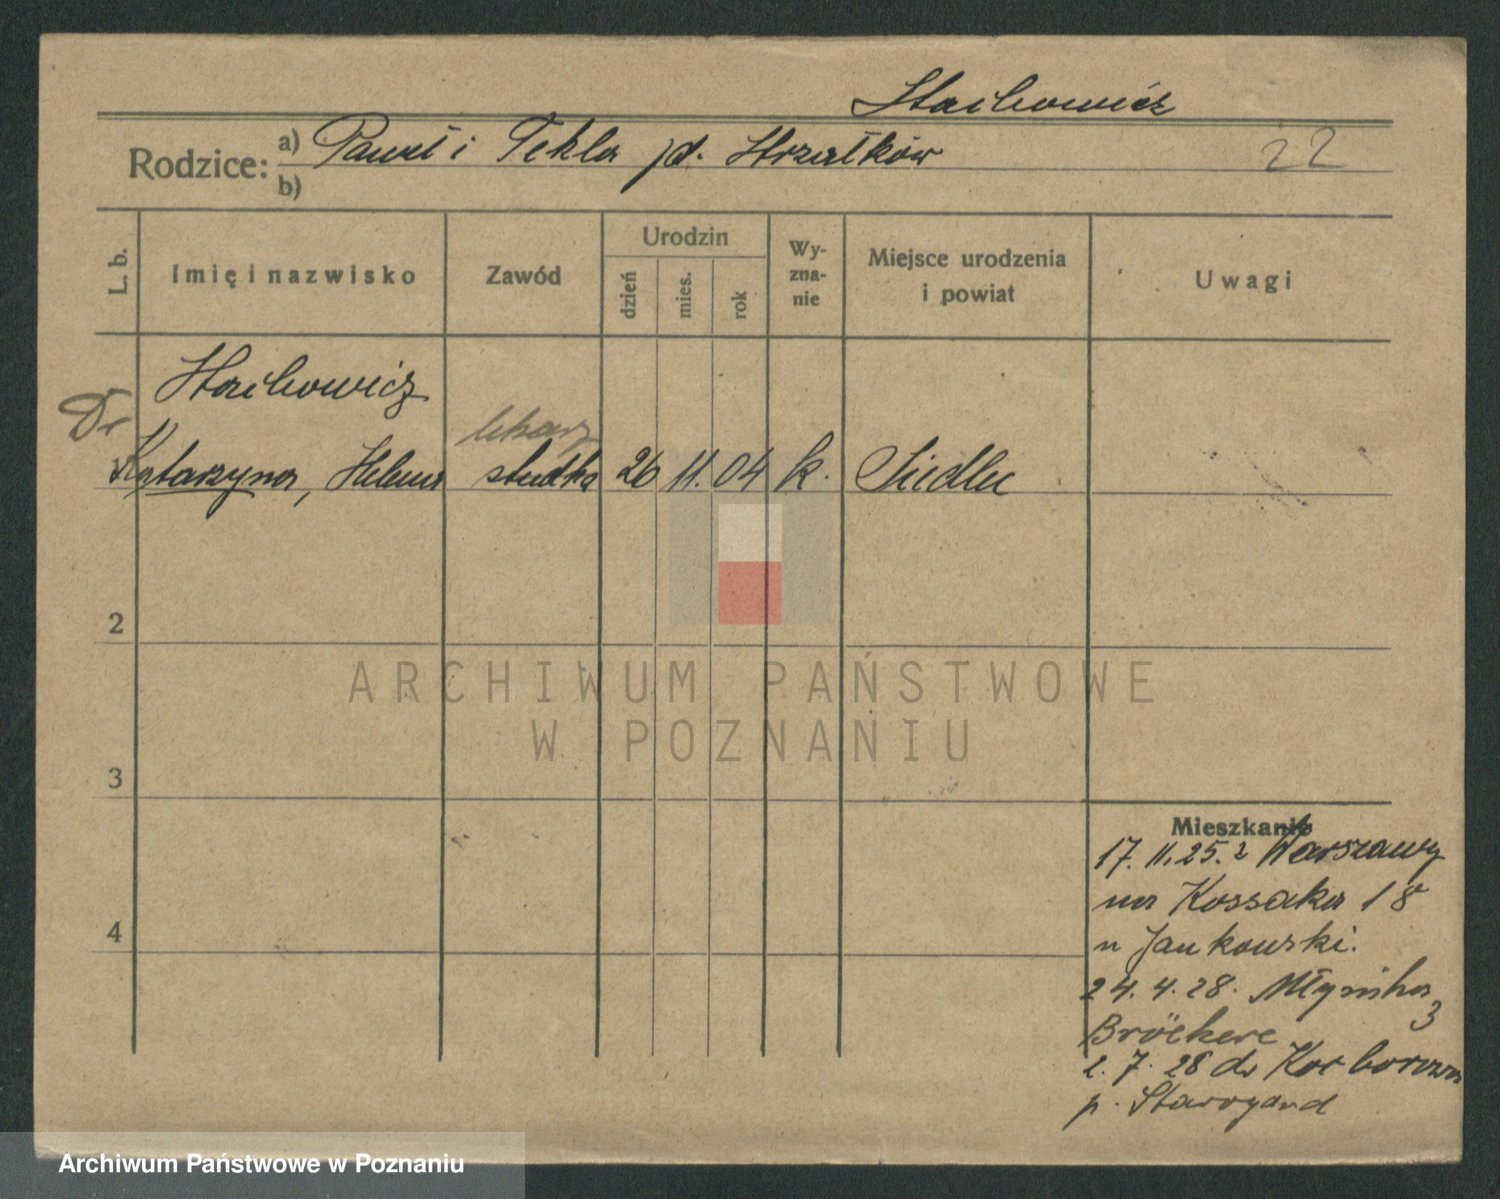 Stachowicz
Rodzice: a) Paweł i Tekla p. d. Strzałków 22
b)
L. b.
Imię i nazwisko
Zawód
Urodzin
dzień
mies.
rok
Wy-
zna-
nie
Miejsce urodzenia
i powiat
Uwagi
Dr
Stachowicz
lekarz
Katarzyna, Helena studtka 26 11. 04 k. Siedlec
2
3
4
Mieszkanie
17. 11. 25. z Warszawy
na Kossaka 18
u Jankowski.
24. 4. 28. Młyńska 3
Bröckere
2. 7. 28 do Kocborowa
p. Starogard
ARCHIWUM PAŃSTWOWE
W POZNANIU
Archiwum Państwowe w Poznaniu